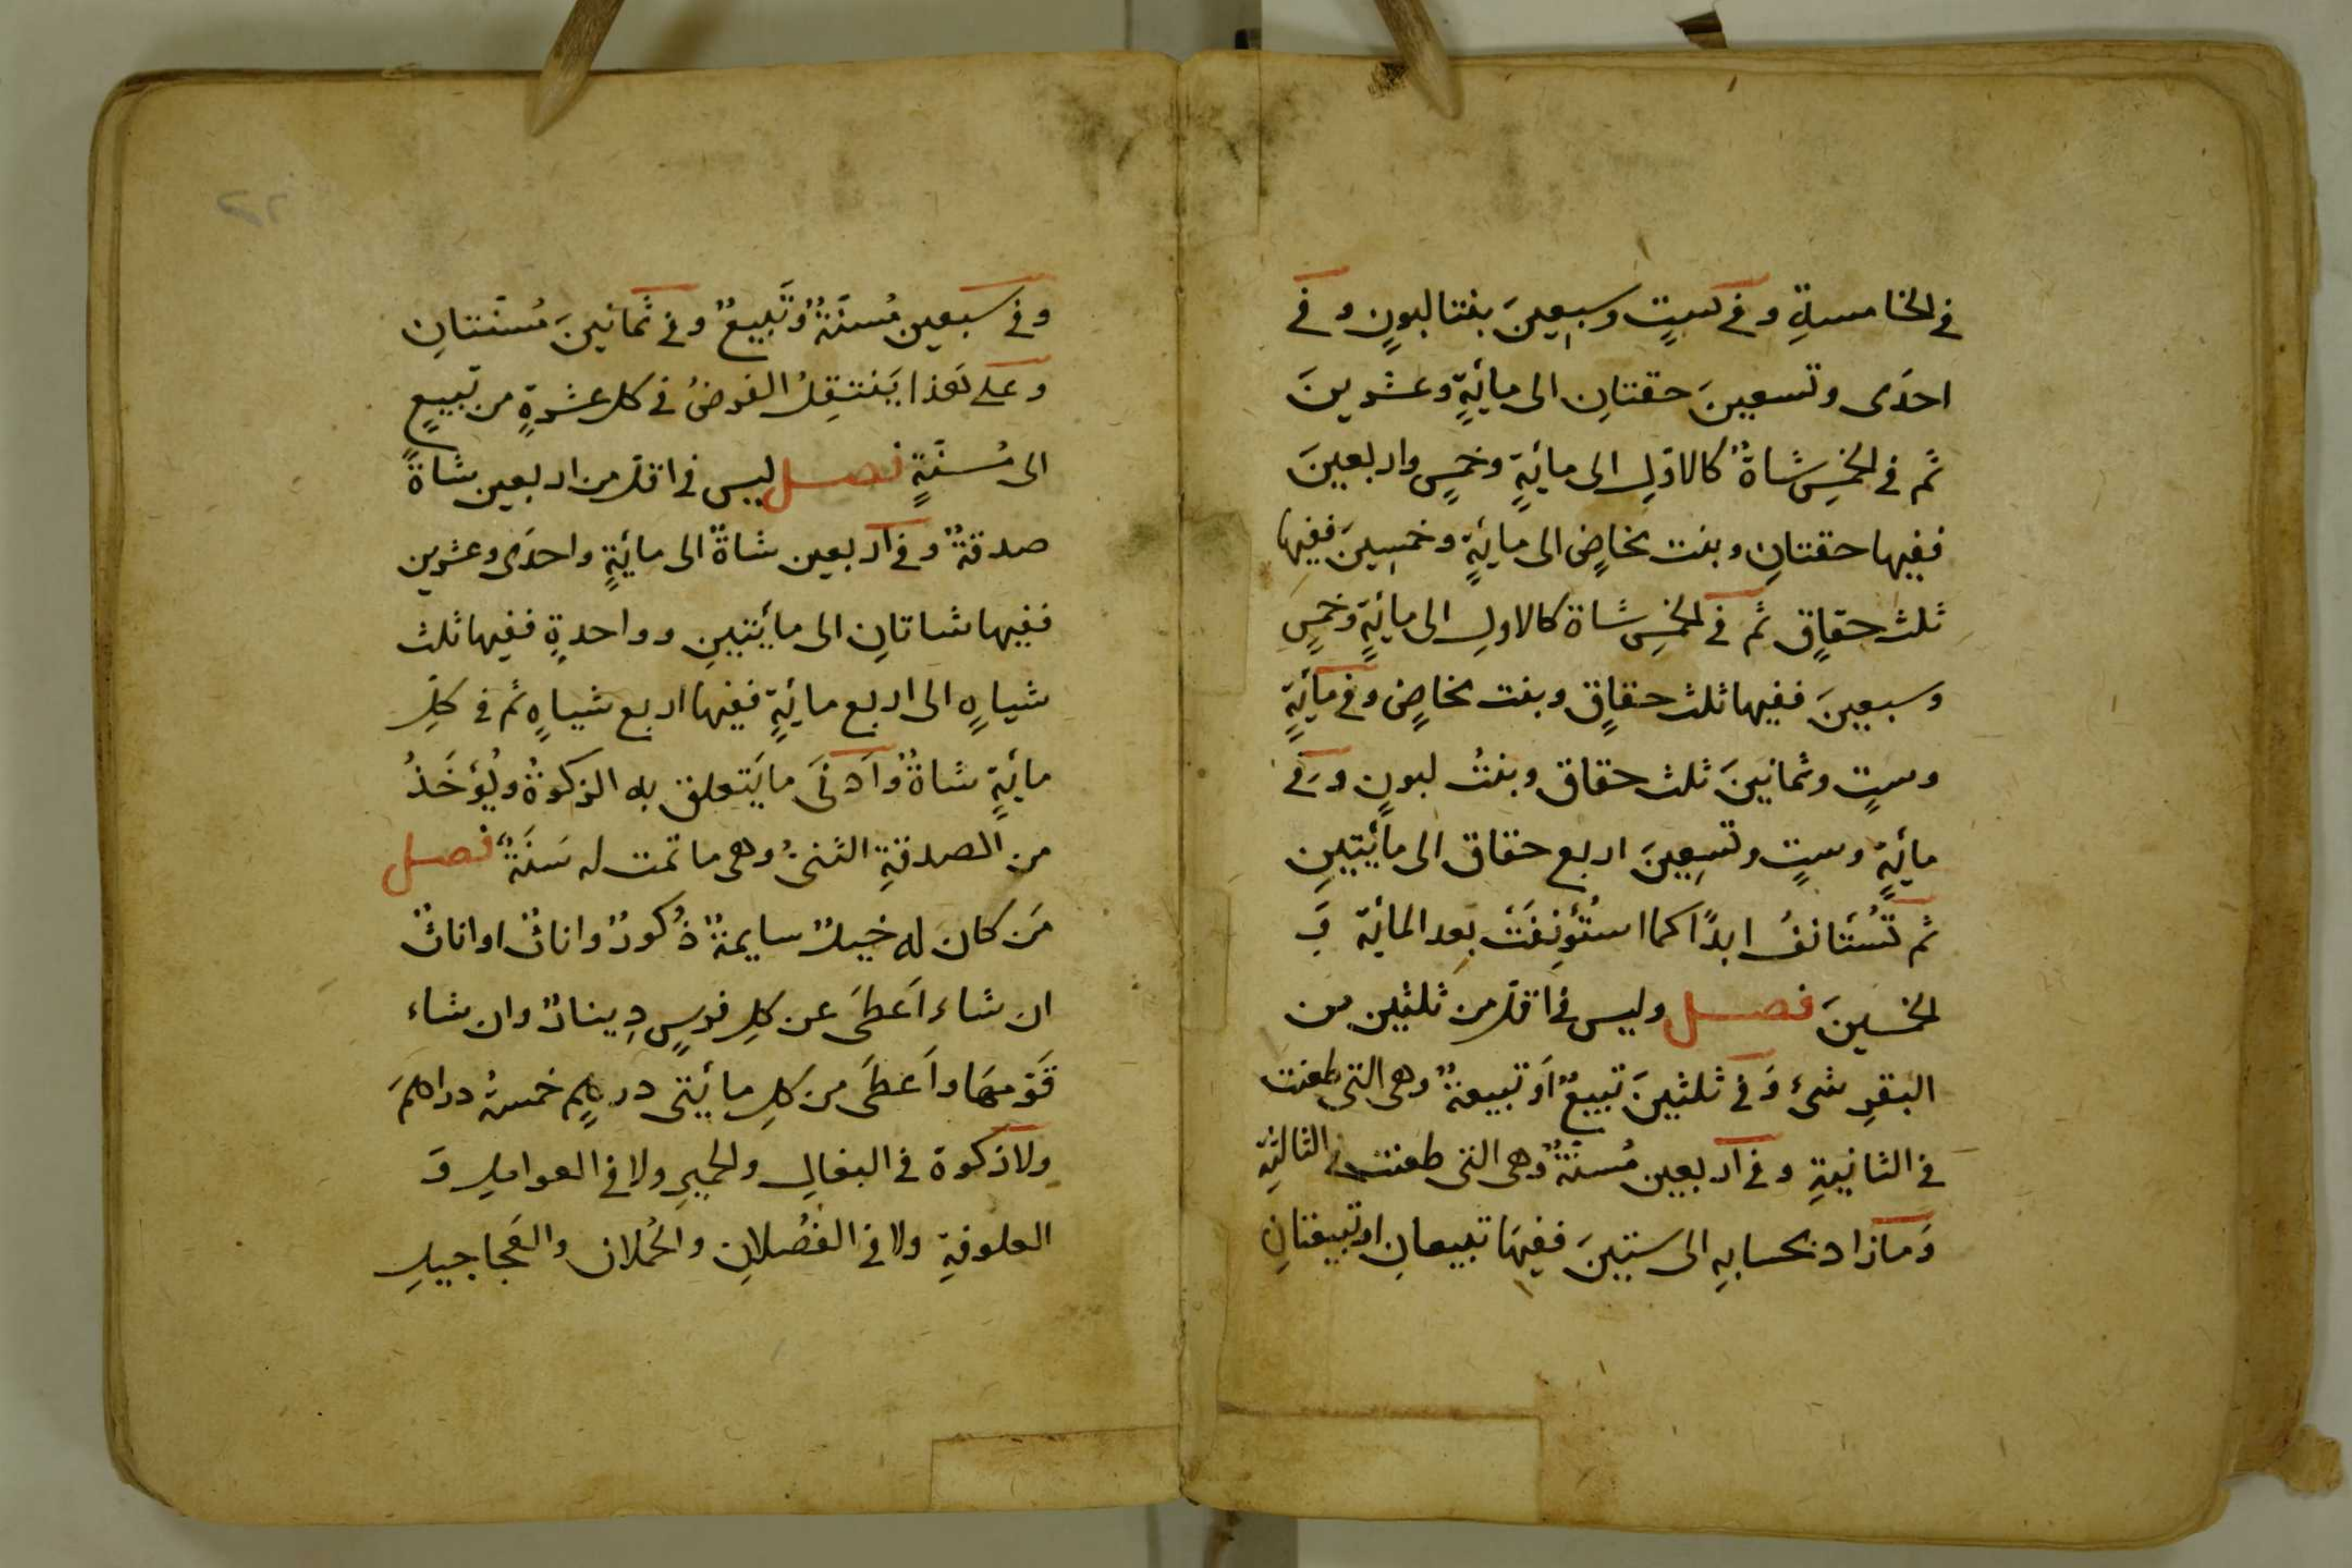 في الخامسةِ وفي ستٍ وسبعينَ بنتا لبونٍ وفي
احدَى وتسعينَ حقتانِ الى مائَةٍ وعشرينَ
ثم في الخمسِ شاةٌ كالاوّلِ الى مائَةٍ وخمسٍ واربعينَ
ففيها حقتانِ وبنت مخاضٍ الى مائَةٍ وخمسِينَ ففيها
ثلث حقاقٍ ثم في الخمسِ شاة كالاولِ الى مائةٍ وخمسٍ
وسبعينَ ففيها ثلث حقاقٍ وبنت مخاضٍ وفي مائَةٍ
وستٍ وثمانينَ ثلث حقاق وبنتُ لبونٍ وفي
مائَةٍ وستٍ وتسعِينَ اربع حقاق الى مأئتينِ
ثم تُسْتَأنفُ ابدًا كما استُؤنِفَتْ بعد المائة وَ
الخمسينَ فصل وليس في اقلّ من ثلثين من
البقرِ شئ وَفي ثلثينَ تبيعٌ اَو تبيعةٌ وهى التى طعنت
في الثانيةِ وفي اربعين مُسنَّةٌ وهى التى طعنت في الثالثةِ
وَمازاد بحسابهِ الى ستينَ ففيهَا تبيعانِ او تبيعتانِ
وفي سبعين مُسنَّةٌ وتَبيعٌ وفي ثمانينَ مُسنّتانِ
وعلى هَذا يَنتقِلُ الفرضُ في كل عشرةٍ من تبيعٍ
الى مُسنّةٍ فصل ليس في اقلّ من اربعين شاةً
صدقةٌ وفي اربعين شاةً الى مائَةٍ واحدَى وعشرين
ففيها شاتانِ الى مأئتينِ وواحدةٍ ففيها ثلث
شياهٍ الى اربع مائَةٍ ففيها اربع شياهٍ ثم في كلِّ
مائَةٍ شاةٌ وَاَدنَى ما يَتعلق به الزكوةُ ويُؤخَذُ
من الصدقةِ الثنىُ وهى ما تمت له سَنَةٌ فصل
مَن كان له خيلٌ سايمةٌ ذُكورٌ واناثٌ او اناثٌ
ان شاء اَعطَى عن كلِ فرسٍ دِينارٌ وان شاء
قَوّمهَا واَعطَى من كلِ مائَتى درهمٍ خمسةُ دراهمَ
ولازكوة في البغالِ والحميرِ ولا في العواملِ وَ
العلوفةِ ولا في الفُصْلانِ والحُملان والعَجاجيلِ